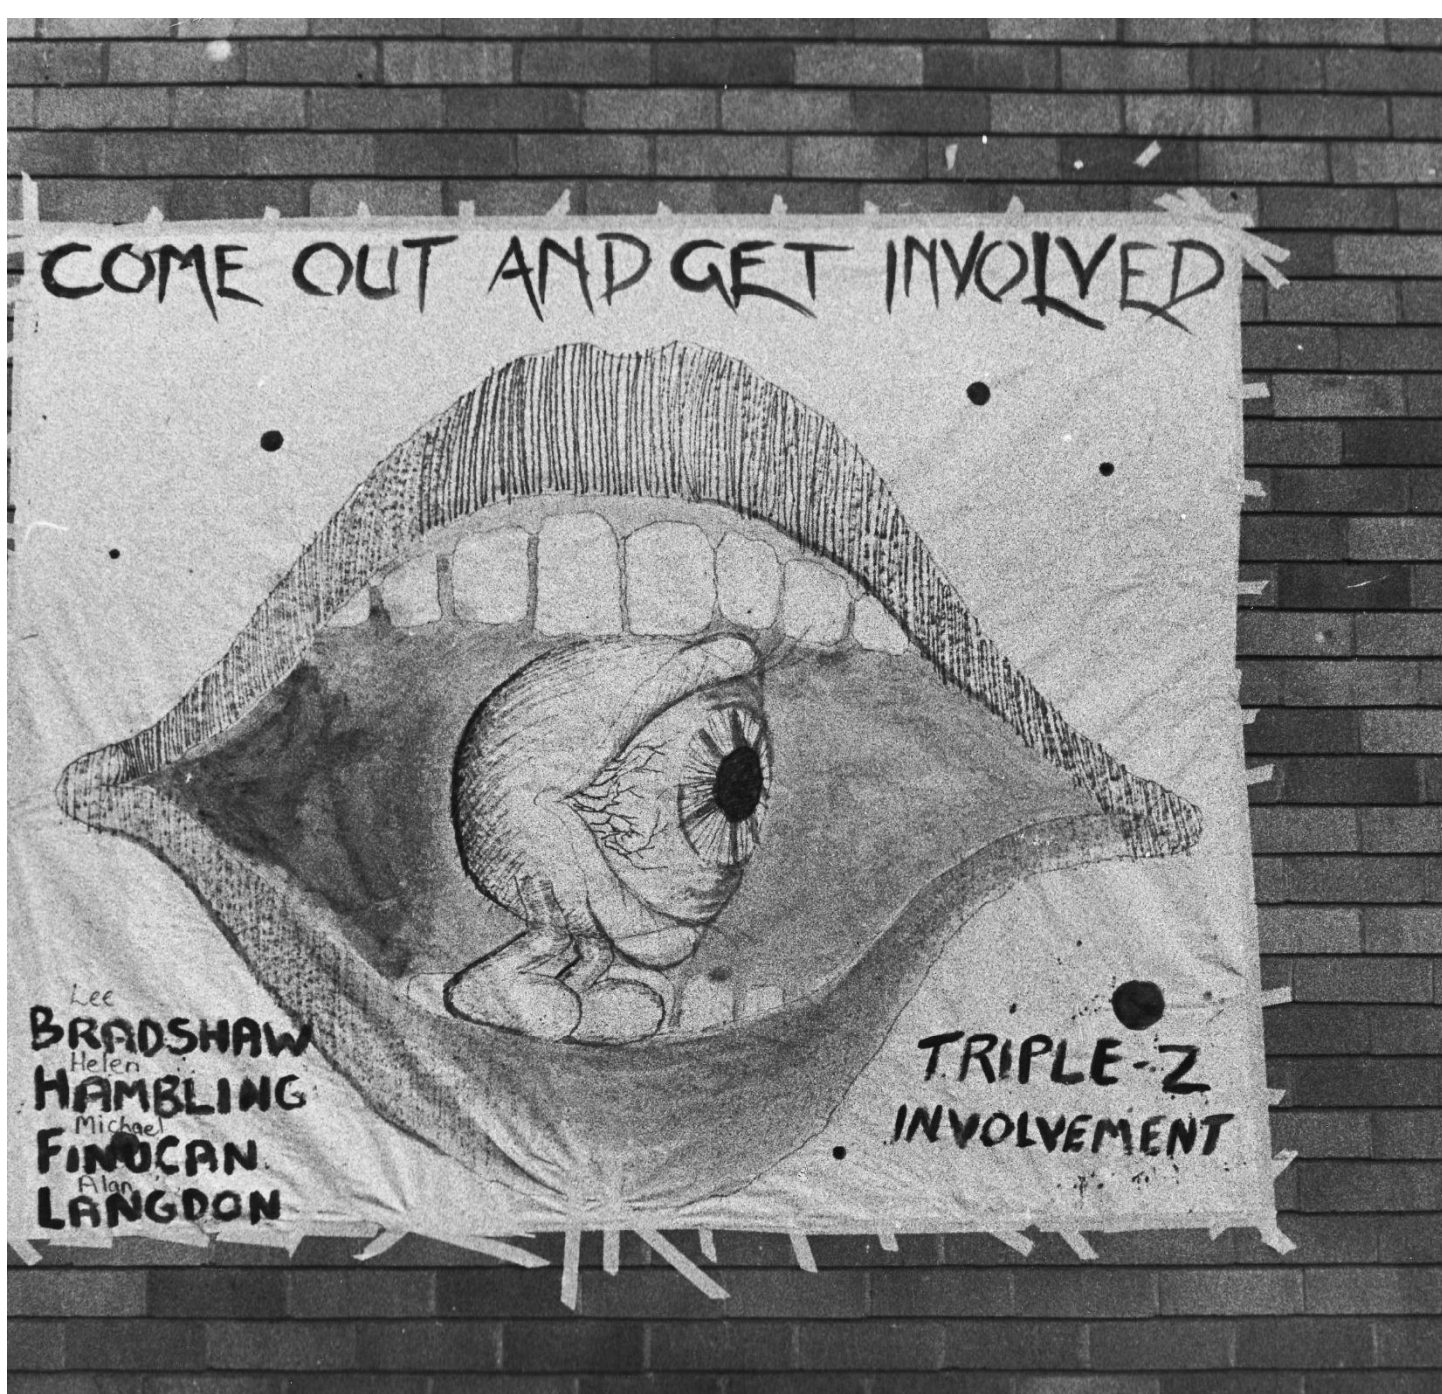 COME OUT AND GET INVOLVED
Lee
BRADSHAW
Helen
HAMBLING
Michael
FINUCAN
Alan
LANGDON
TRIPLE-Z
INVOLVEMENT